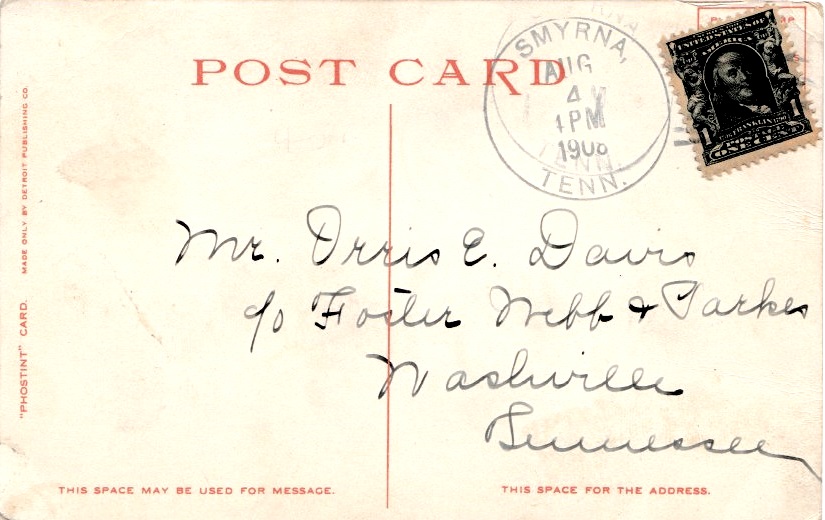 POST CARD
SMYRNA,
AUG
4
4 PM
1908
TENN.
UNITED STATES OF
AMERICA
FRANKLIN
POSTAGE
1 ONE CENT 1
Mr. Orris E. Davis
c/o Foster Webb & Parkes
Nashville
Tennessee
MADE ONLY BY DETROIT PUBLISHING CO.
"PHOSTINT" CARD.
THIS SPACE MAY BE USED FOR MESSAGE.
THIS SPACE FOR THE ADDRESS.